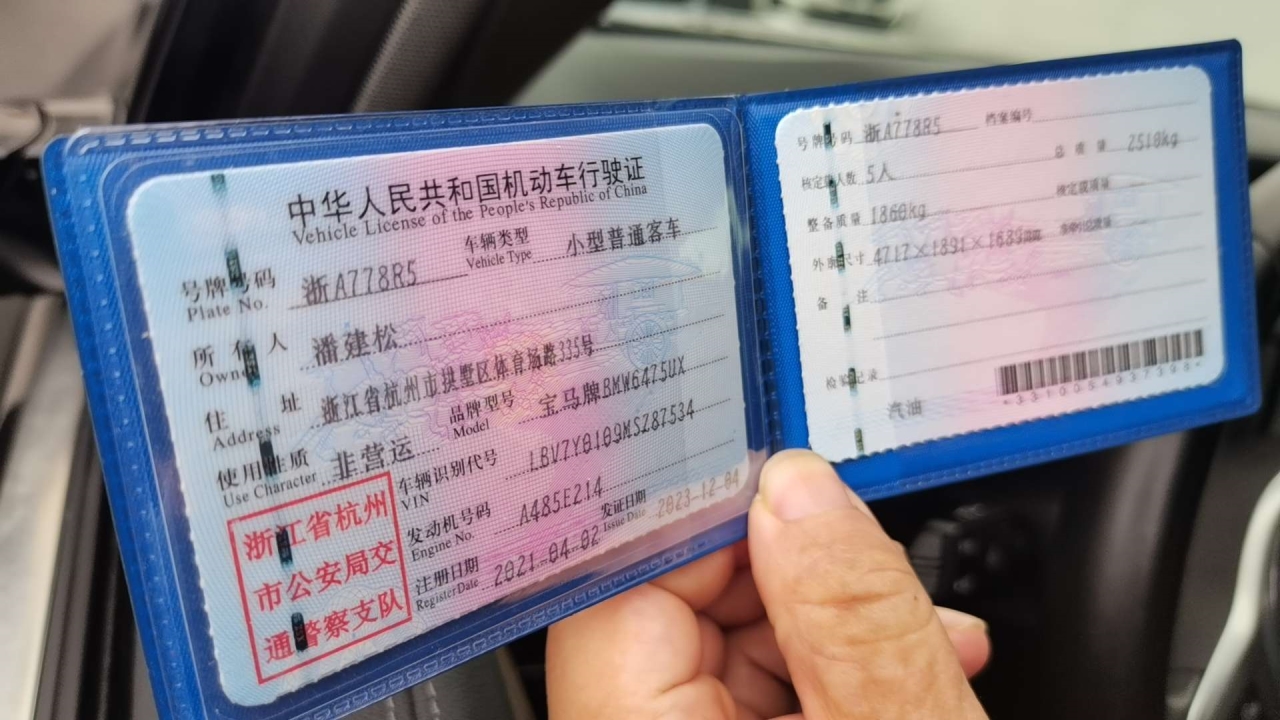 中华人民共和国机动车行驶证
Vehicle License of the People's Republic of China
号牌号码 浙A778R5 车辆类型 小型普通客车
Plate No. Vehicle Type
所有人 潘建松
Owner
住址 浙江省杭州市拱墅区体育场路335号
Address
使用性质 非营运 品牌型号 宝马牌BMW6475UX
Use Character Model
车辆识别代号 LBV7Y0109MS287534
VIN
发动机号码 A485E214
Engine No.
注册日期 2021-04-02 发证日期 2023-12-04
Register Date Issue Date
浙江省杭州
市公安局交
通警察支队
号牌号码 浙A778R5 档案编号
核定载人数 5人 总质量 2510kg
整备质量 1860kg 核定载质量
外廓尺寸 4717×1891×1689mm
备注
检验记录
汽油